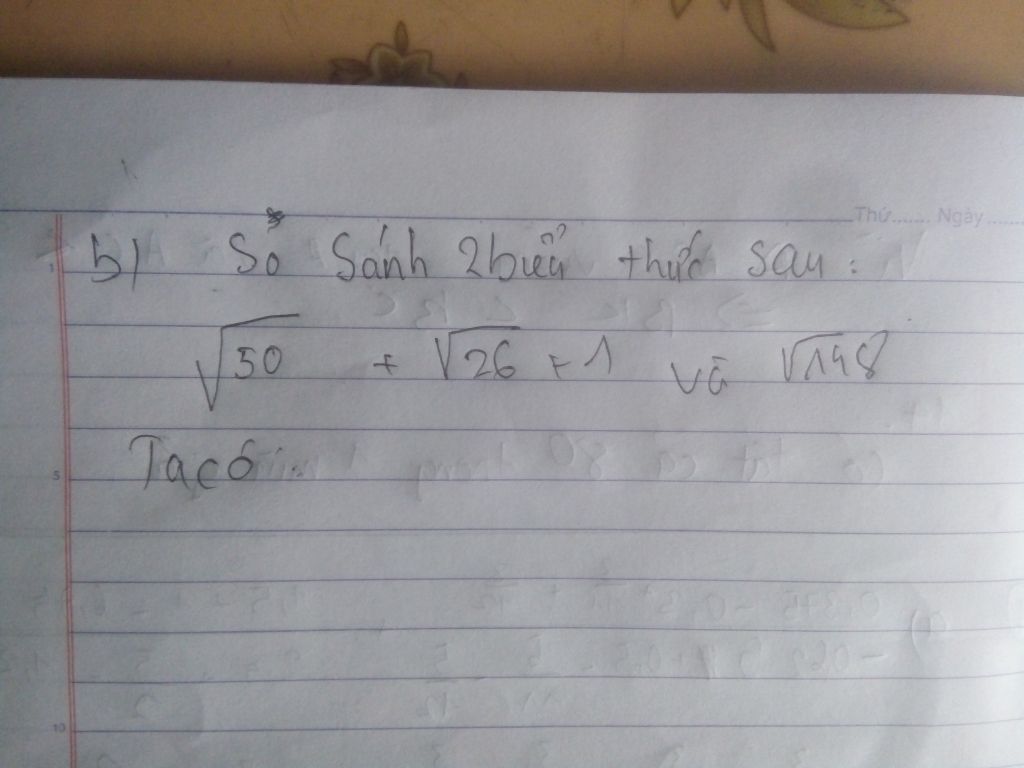 Thứ...... Ngày......
b) So Sánh 2 biểu thức sau:
√50 + √26 + 1 và √148
Ta có:
1
5
10